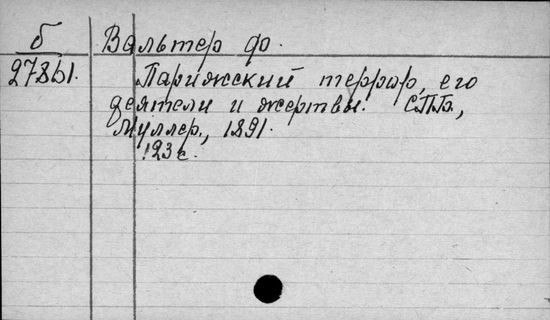 б Вальтер Ф.
27861. Парижский террор, его
деятели и жертвы. СПБ,
Мүллер., 1891.
123 с.